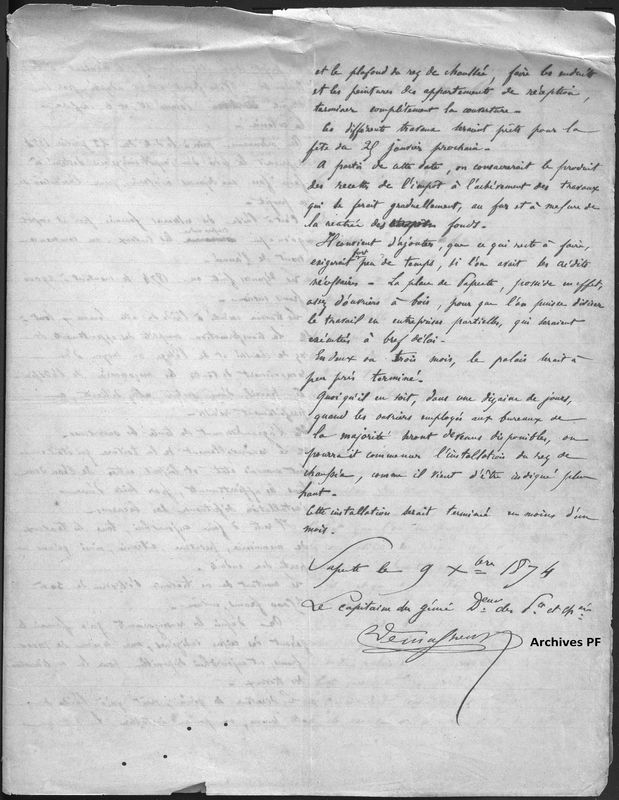 et le plafond du rez de chaussée, faire les enduits
et les peintures des appartements de réception,
terminer complètement la couverture.
Ces différents travaux seraient prêts pour la
fête du 25 janvier prochain.
A partir de cette date, on consacrerait le produit
des recettes de l'impôt à l'achèvement des travaux
qui se ferait graduellement, au fur et à mesure de
la rentrée des fonds.
Il convient d'ajouter, que ce qui reste à faire,
exigerait fort peu de temps, si l'on avait les crédits
nécessaires. La place de Papeete, possède en effet,
assez d'ouvriers à bois, pour que l'on puisse diviser
le travail en entreprises partielles, qui seraient
exécutées à bref délai.
En deux ou trois mois, le palais serait à
peu près terminé.
Quoiqu'il en soit, dans une dizaine de jours,
quand les ouvriers employés aux bureaux de
la majorité seront devenus disponibles, on
pourrait commencer l'installation du rez de
chaussée, comme il vient d'être indiqué plus
haut.
Cette installation serait terminée en moins d'un
mois.
Papeete le 9 Xbre 1874
Le Capitaine du génie Deur des et
Archives PF